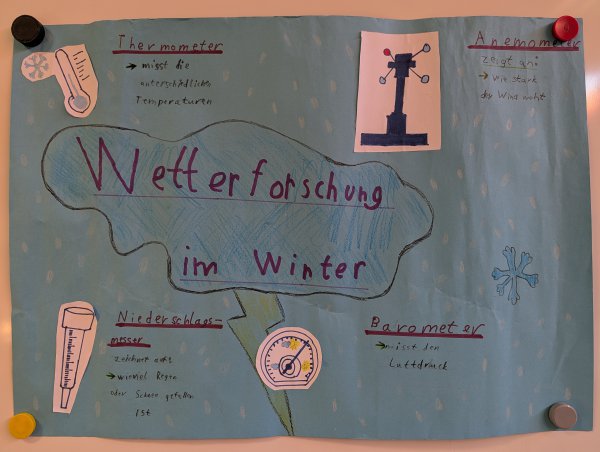 Thermometer
→ misst die
unterschiedlichen
Temperaturen
Anemometer
zeigt an:
→ wie stark
der Wind weht
Wetterforschung
im Winter
Niederschlags-
messer
zeichnet auf:
→ wieviel Regen
oder Schnee gefallen
ist
Barometer
→ misst den
Luftdruck